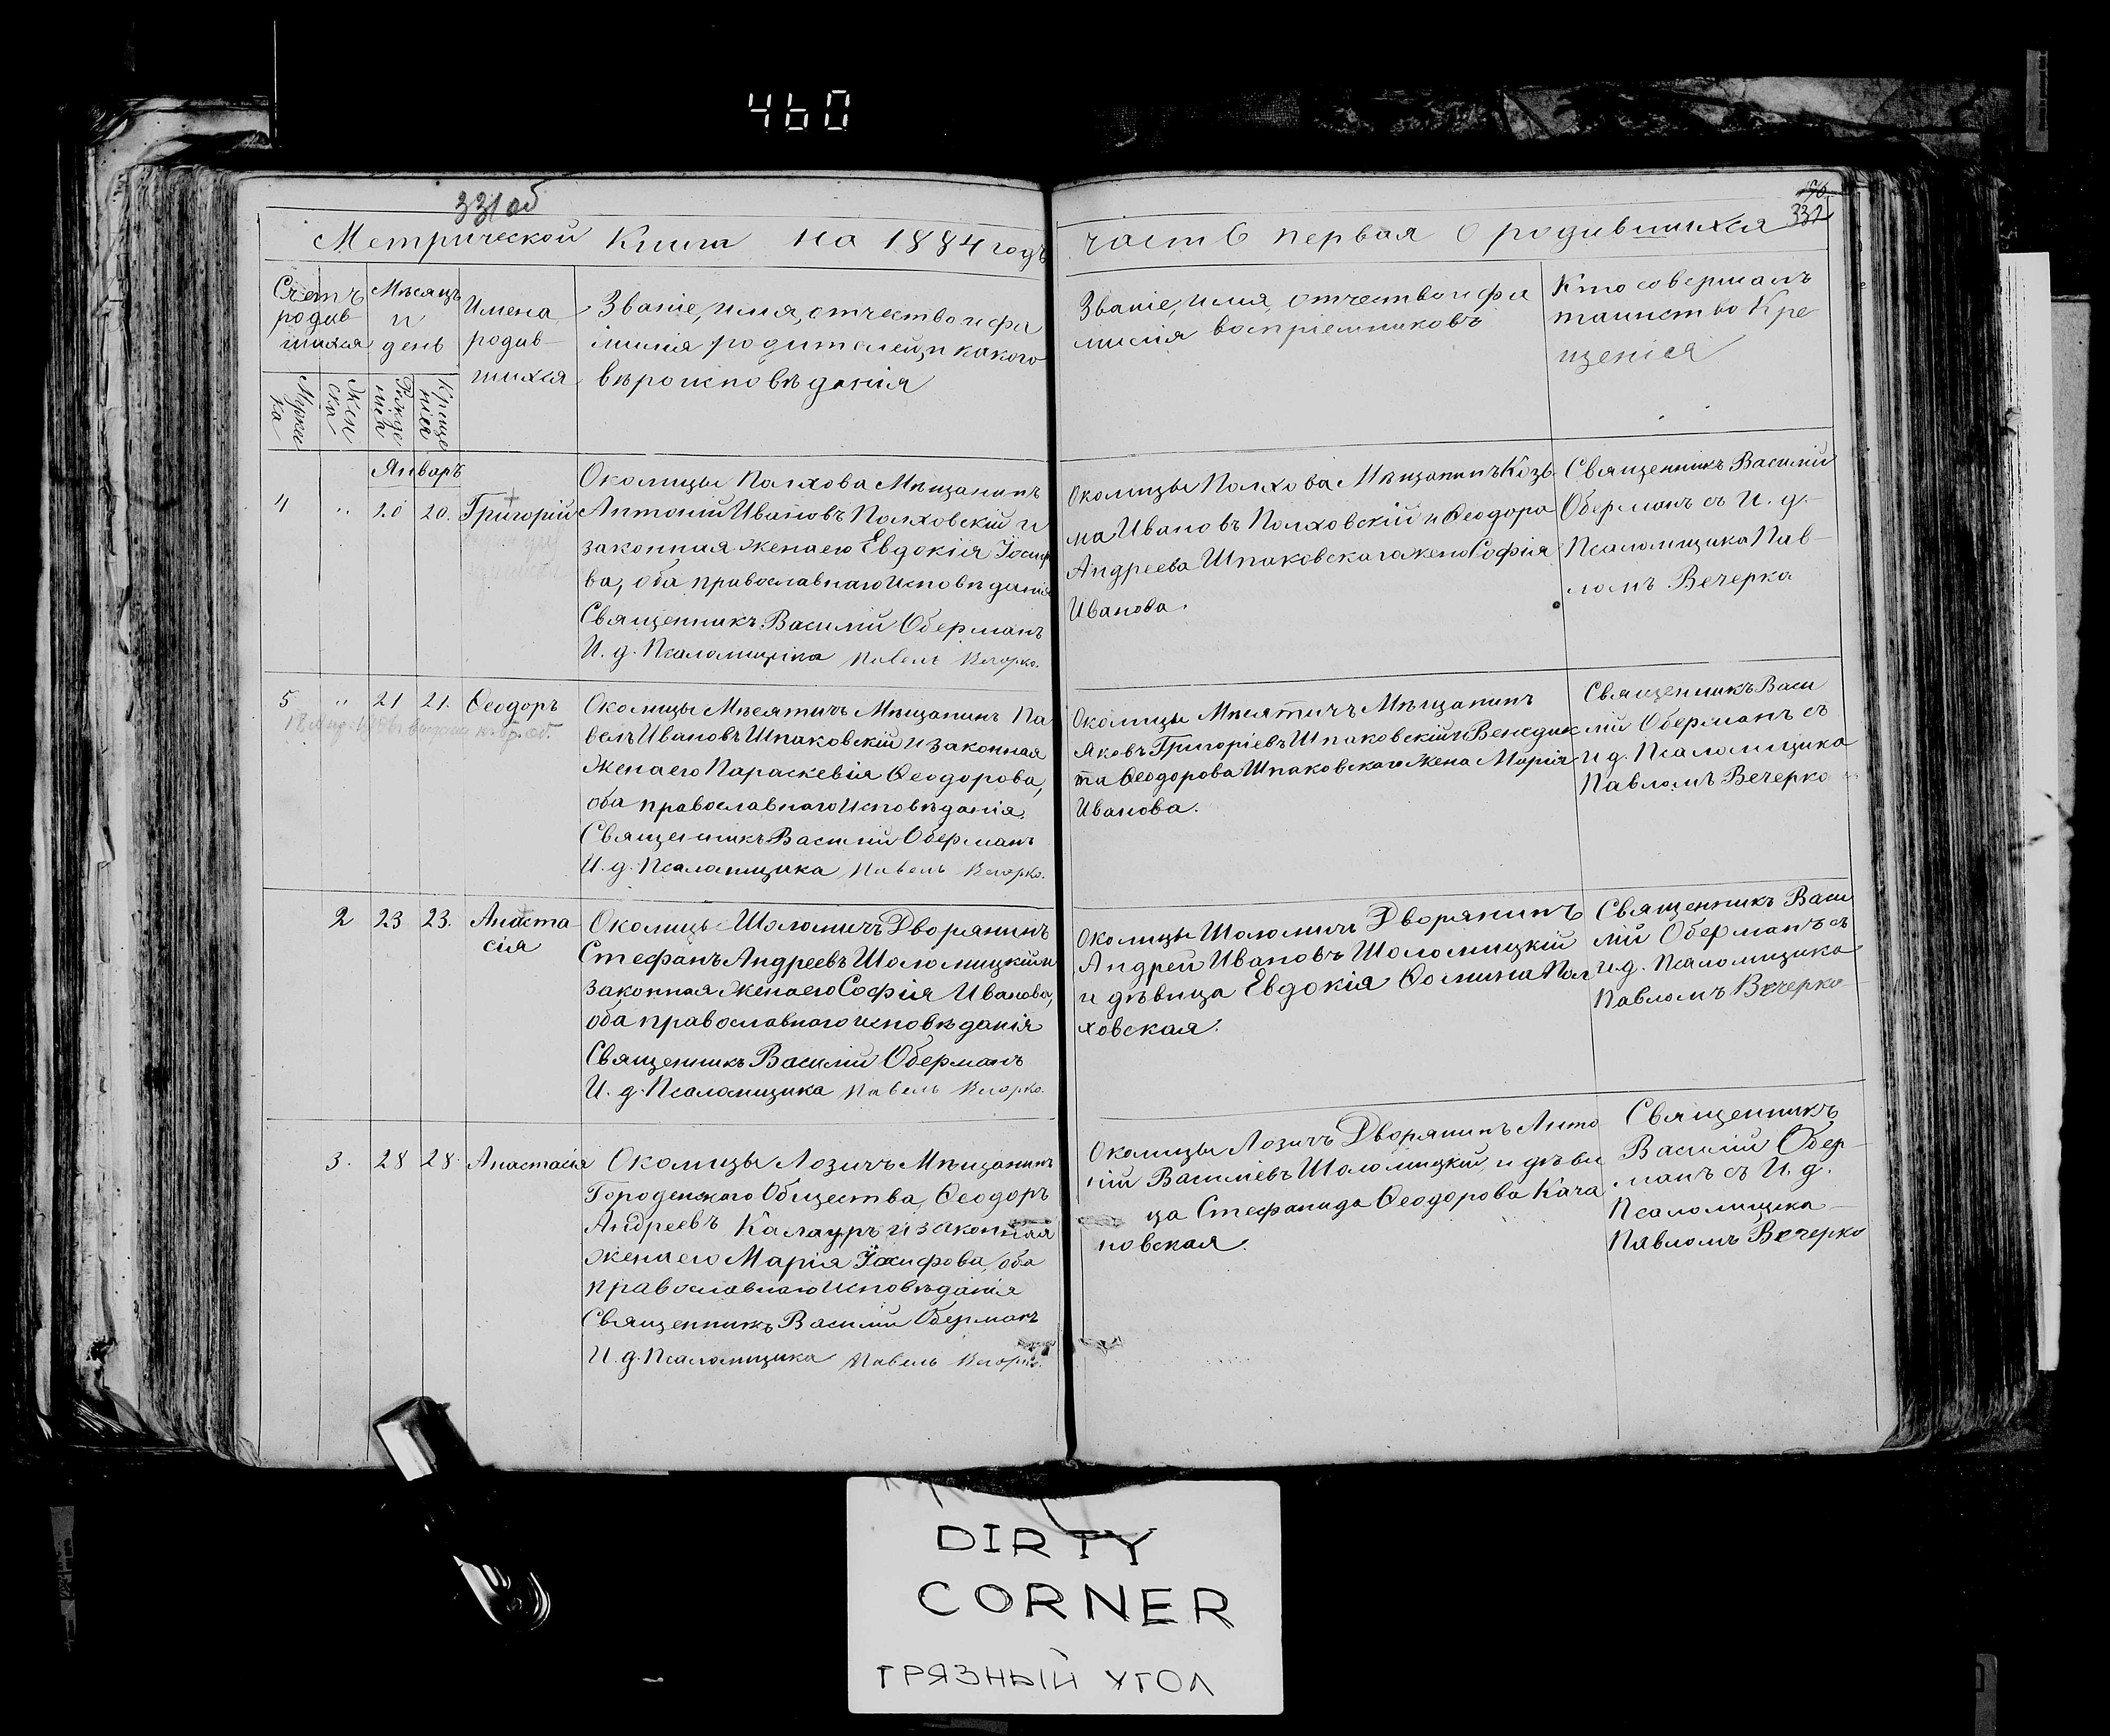 460
331 об
332
Метрической Книги на 1884 годъ
часть первая о родившихся
Счетъ
родив
шихся
Мѣсяцъ
и
день
Имена
родив-
шихся
Званіе, имя, отчество и фа
милія родителей, и какого
вѣроисповѣданія
Мужес
ка
Жен
ска
Рожде
нія
Креще
нія
Званіе, имя, отчество и фа
милія воспріемниковъ
Кто совершалъ
таинство Кре
щенія
Январь
4 " 20 20. Григорій
Околицы Полхова Мѣщанинъ
Антоній Ивановъ Полховскій и
законная жена его Евдокія Іосифо
ва, оба православнаго исповѣданія
Священникъ Василій Оберманъ
И. д. Псаломщика Павелъ Вечорко.
Околицы Полхова Мѣщанинъ Козь
ма Ивановъ Полховскій и Ѳеодора
Андреева Шпаковскаго жена Софія
Иванова.
Священникъ Василій
Оберманъ съ И. д.
Псаломщика Пав-
ломъ Вечерко
5 " 21 21. Ѳеодоръ
Околицы Мѣсятичъ Мѣщанинъ Па
велъ Ивановъ Шпаковскій и законная
жена его Параскевія Ѳеодорова,
оба православнаго исповѣданія.
Священникъ Василій Оберманъ
И. д. Псаломщика Павелъ Вечорко.
Околицы Мѣсятичъ Мѣщанинъ
Яковъ Григоріевъ Шпаковскій и Венедик
та Ѳеодорова Шпаковскаго жена Марія
Иванова.
Священникъ Васи
лій Оберманъ съ
и д. Псаломщика
Павломъ Вечерко
2 23 23. Анаста
сія
Околицы Шоломичъ Дворянинъ
Стефанъ Андреевъ Шоломицкій и
законная жена его Софія Иванова,
оба православнаго исповѣданія
Священникъ Василій Оберманъ
И. д. Псаломщика Павелъ Вечорко.
Околицы Шоломичъ Дворянинъ
Андрей Ивановъ Шоломицкій
и дѣвица Евдокія Ѳомина Пол
ховская.
Священникъ Васи
лій Оберманъ съ
и.д. Псаломщика
Павломъ Вечерко
3. 28 28. Анастасія
Околицы Лозичъ Мѣщанинъ
Городенскаго Общества, Ѳеодоръ
Андреевъ Калауръ и законная
жена его Марія Іосифова, оба
православнаго исповѣданія
Священникъ Василій Оберманъ
И. д. Псаломщика Павелъ Вечорко.
Околицы Лозичъ Дворянинъ Анто
ній Василіевъ Шоломицкій и дѣви
ца Стефанида Ѳеодорова Кача
новская.
Священникъ
Василій Обер-
манъ съ И. д.
Псаломщика
Павломъ Вечерко
DIRTY
CORNER
ГРЯЗНЫЙ УГОЛ